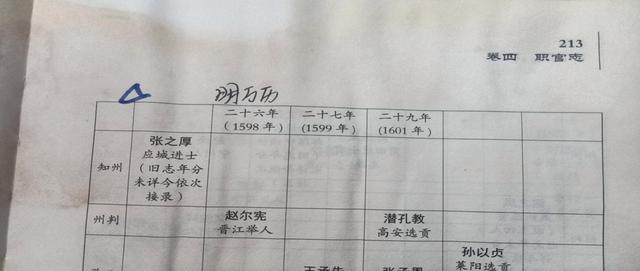 213
卷四 职官志
明万历
二十六年 二十七年 二十九年
(1598年) (1599年) (1601年)
知州
张之厚
应城进士
(旧志年分
未详今依次
接录)
州判
赵尔宪
晋江举人
潜孔教
高安选贡
孙以贞
莱阳选贡